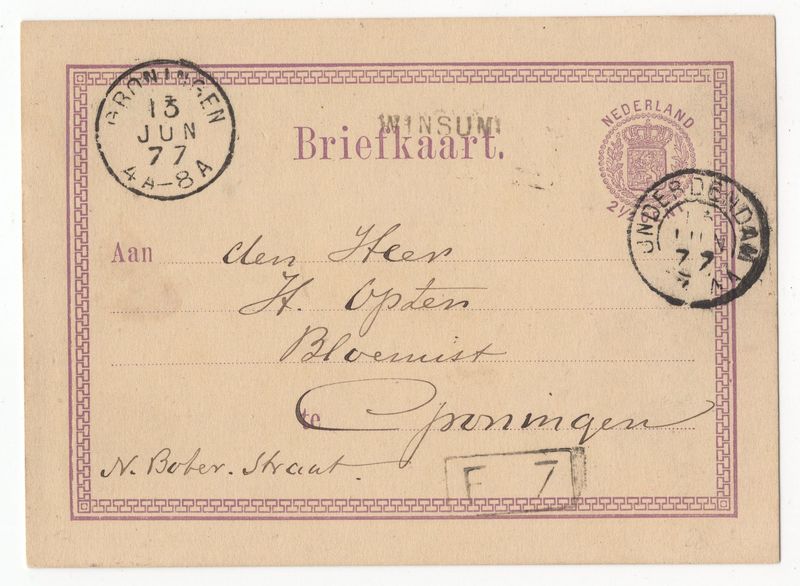 GRONINGEN
13
JUN
77
4A-8A
WINSUM
Briefkaart.
NEDERLAND
2½
ONDERDENDAM
JUN
77
Aan den Heer
H. Opten
Bloemist
te Groningen
N. Boter. Straat.
F 7